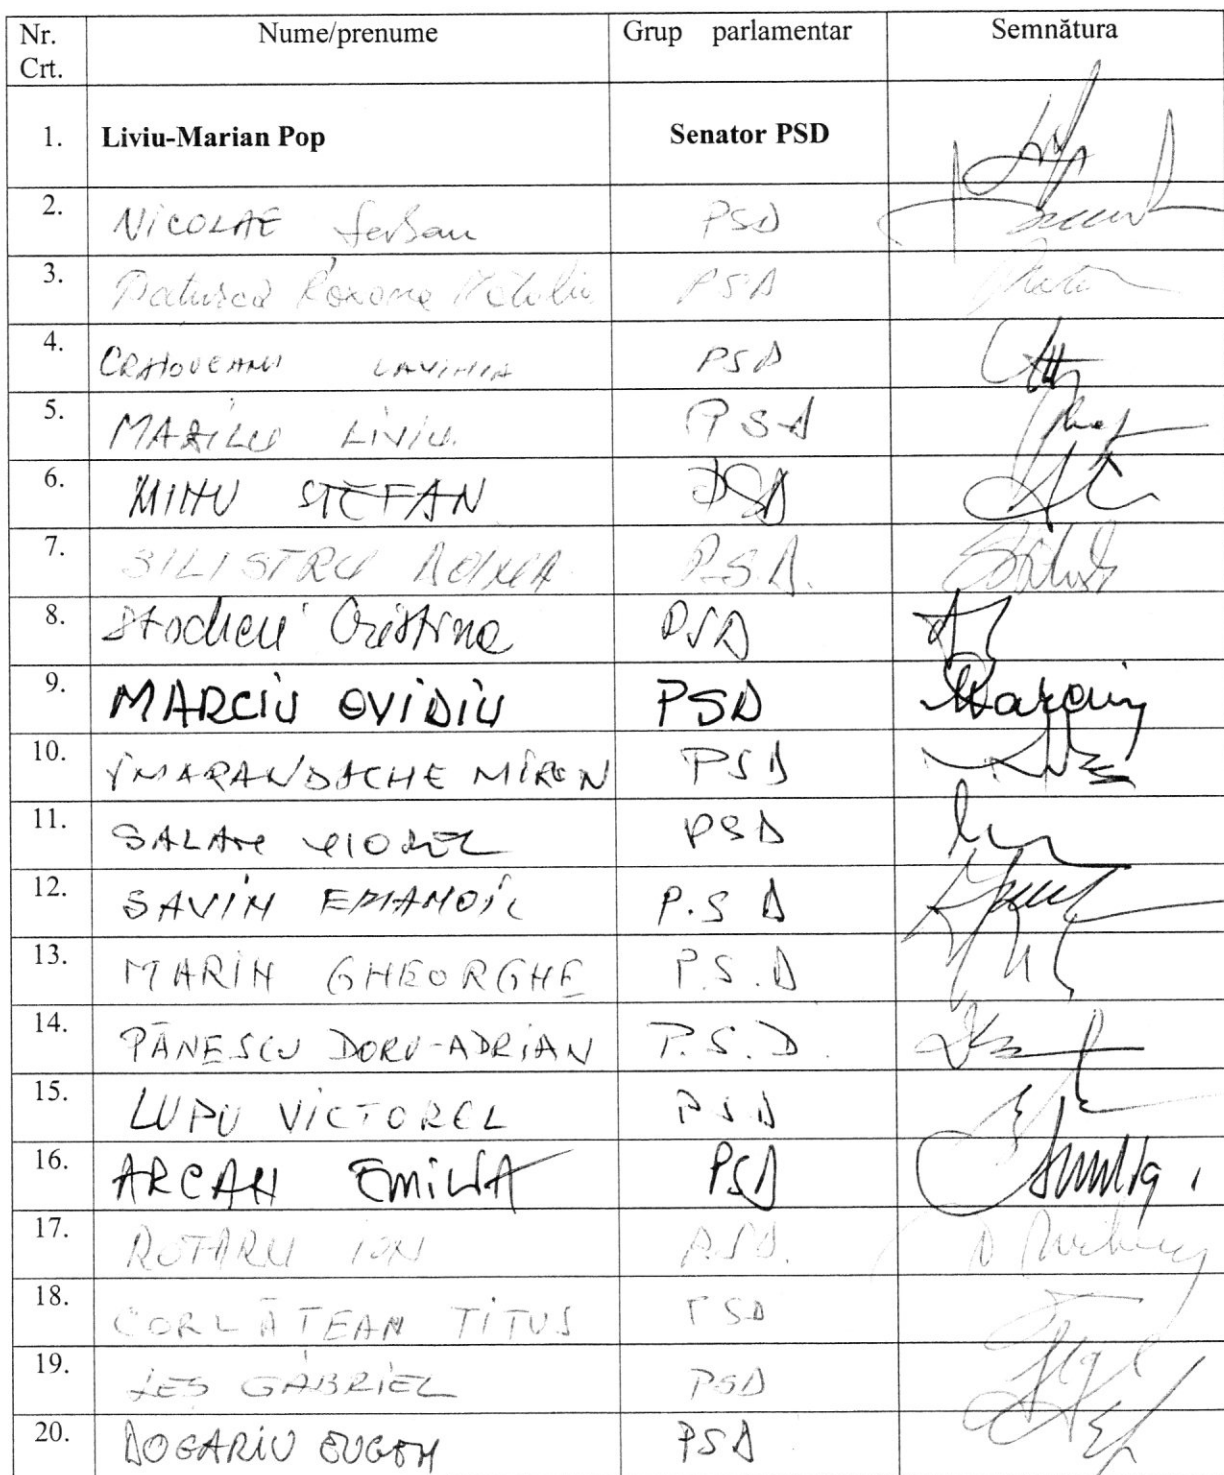 Nr. Crt. Nume/prenume Grup parlamentar Semnătura
1. Liviu-Marian Pop Senator PSD
2. NICOLAE Șerban PSD
3. Pațurcă Roxana Natalia PSD
4. CRAIOVEANU LAVINIA PSD
5. MAZILU LIVIU PSD
6. MIHU ȘTEFAN PSD
7. SILISTRU DOINA P.S.D.
8. Stocheci Cristina PSD
9. MARCIU OVIDIU PSD Marciu
10. SMARANDACHE MIRON PSD
11. SALAN VIOREL PSD
12. SAVIN EMANOIL P.S D
13. MARIN GHEORGHE P.S.D
14. PĂNESCU DORU-ADRIAN P.S.D.
15. LUPU VICTOREL PSD
16. ARCAN EMILIA PSD
17. ROTARU ION P.S.D.
18. CORLĂTEAN TITUS PSD
19. LEȘ GABRIEL PSD
20. DOGARIU EUGEN PSD